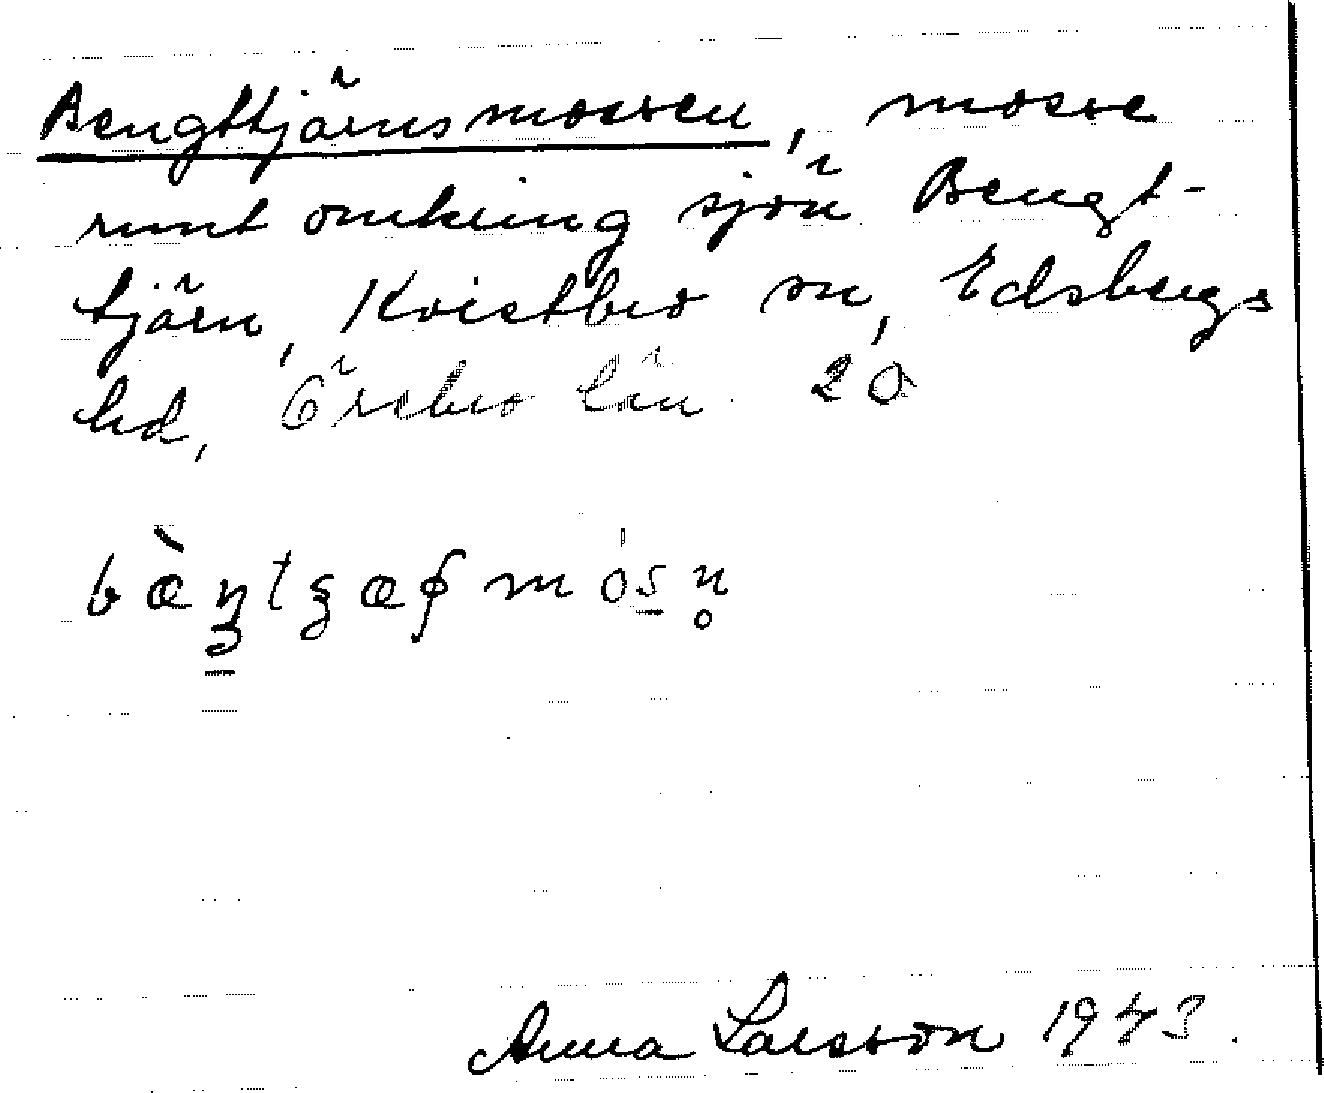 Bengttjärnsmossen, mosse
runt omkring sjön Bengt-
tjärn, Kvistbro sn, Edsbergs
hd, Örebro län. 20
Anna Larsson 1943.